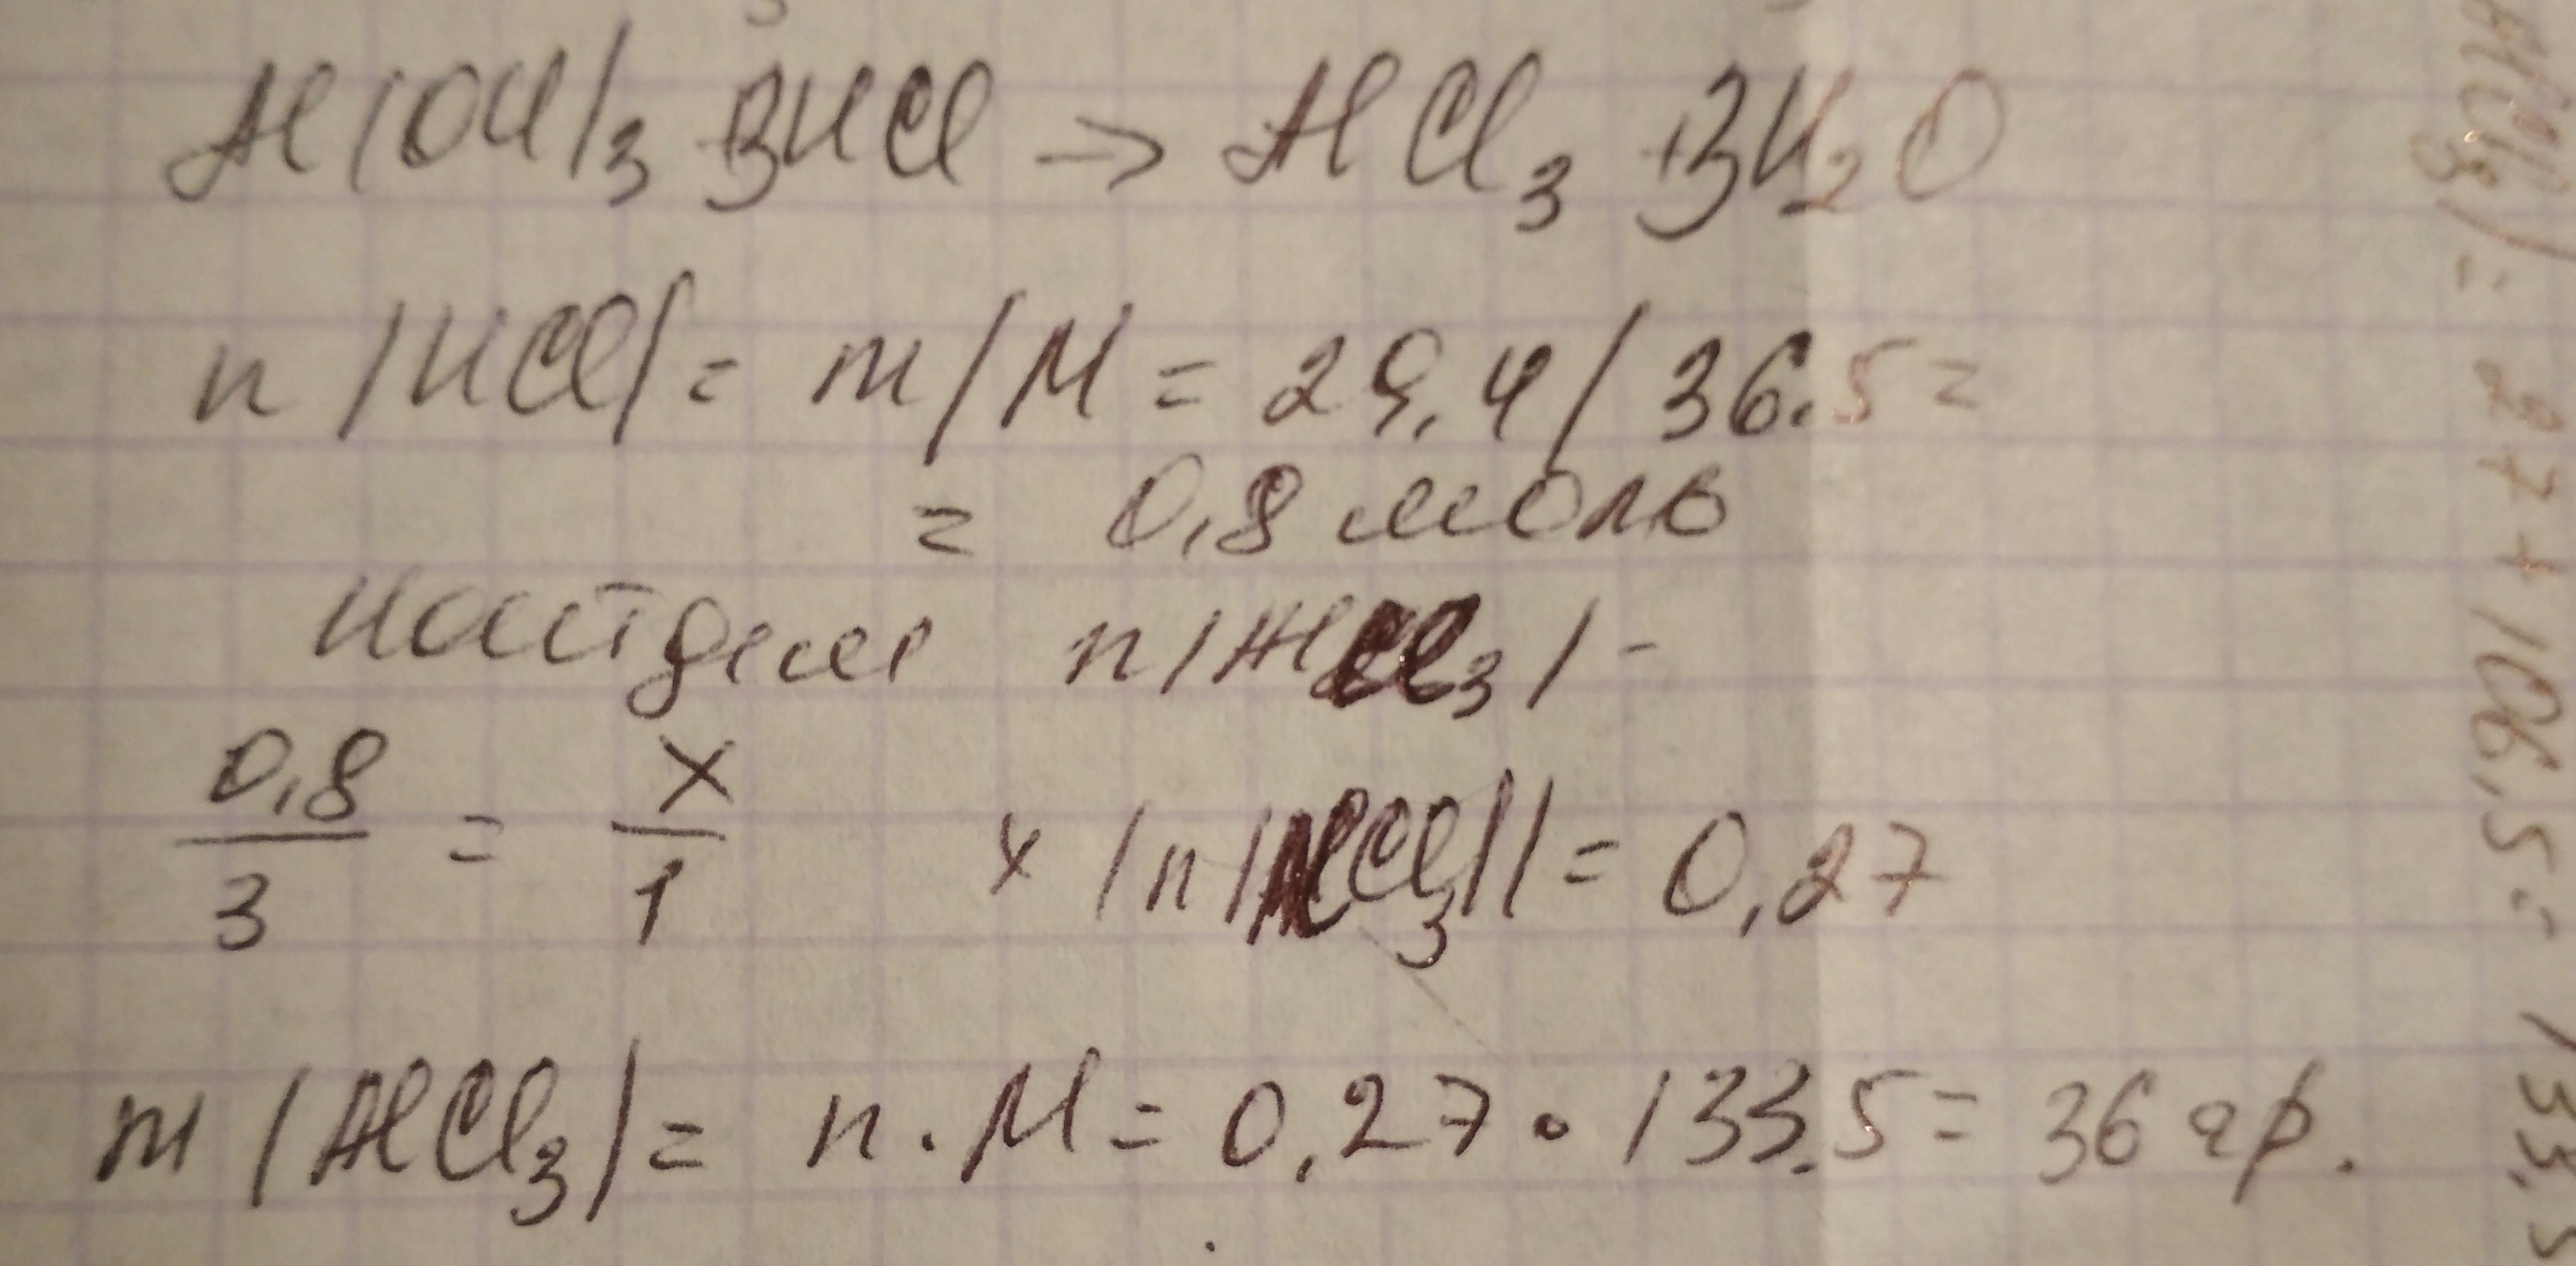 Al(OH)₃ + 3HCl → AlCl₃ + 3H₂O
n (HCl) = m/M = 29,4/36.5 =
= 0,8 моль
найдем n(AlCl₃) -
0,8/3 = x/1 x (n(AlCl₃)) = 0,27
m (AlCl₃) = n · M = 0,27 · 133.5 = 36 гр.
AlCl₃) = 27 + 106,5 = 133,5